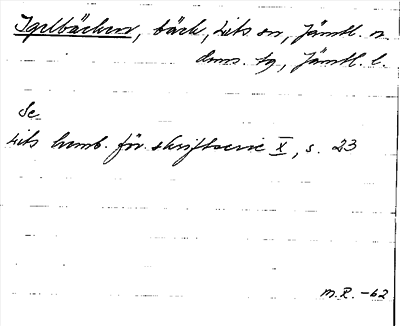 Igelbäcken, bäck, Lits sn, Jämtl. n.
doms. tg, Jämtl. l.
Se
Lits hemb. för. skriftserie X, s. 23
M.R. -62